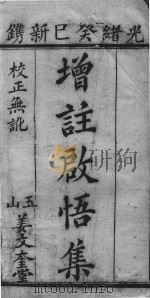 光緒癸巳新鐫
增註啟悟集
校正無訛
玉山
姜文奎堂